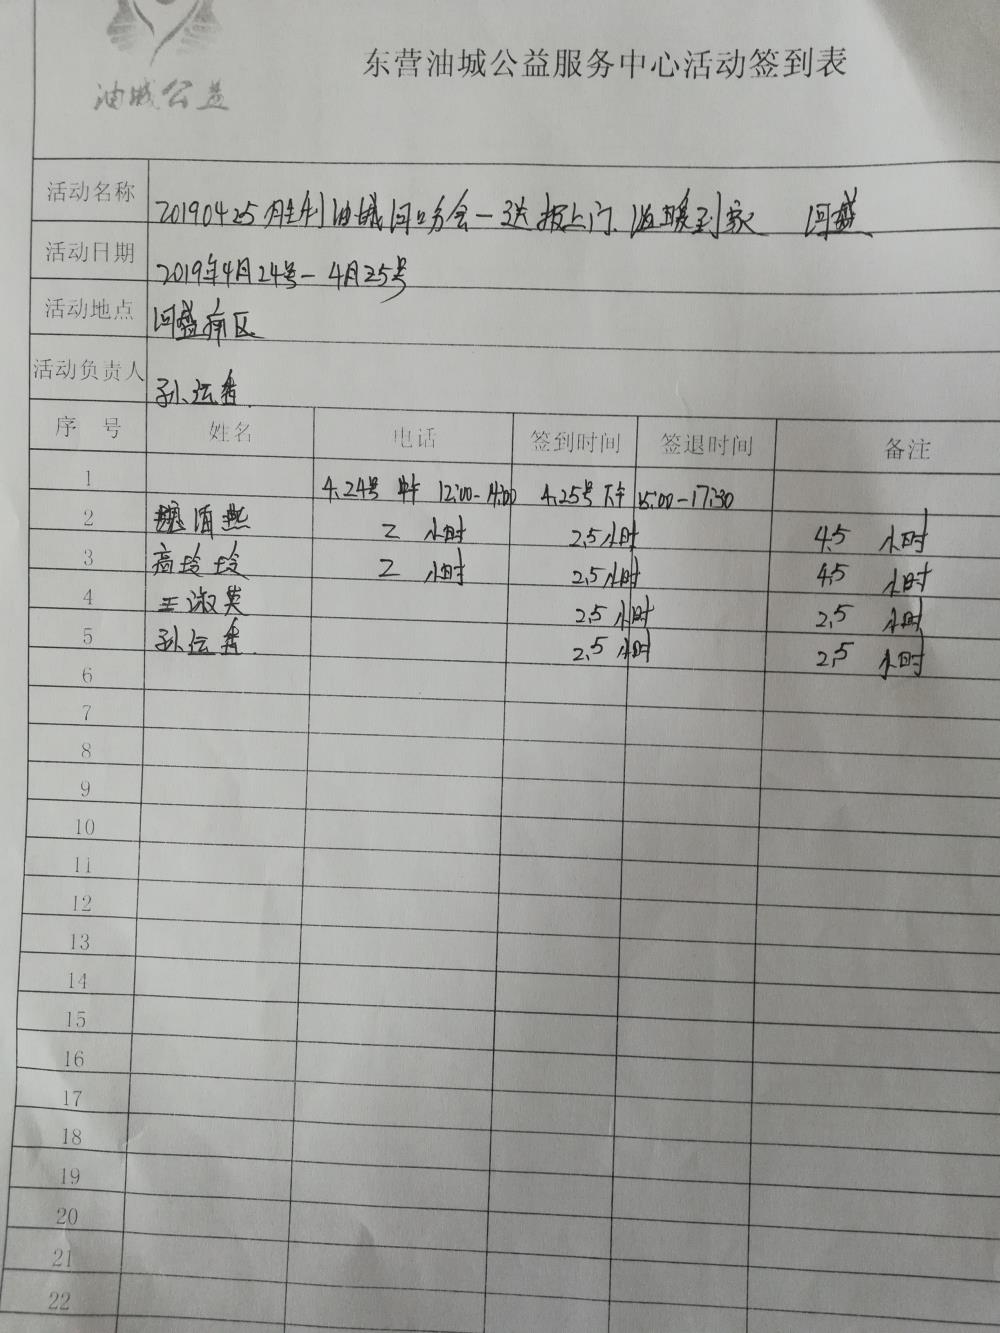 油城公益
东营油城公益服务中心活动签到表
活动名称 20190425胜利油城河口分会一送报上门、温暖到家 河盛
活动日期 2019年4月24号-4月25号
活动地点 河盛南区
活动负责人 孙运香
序 号 姓名 电话 签到时间 签退时间 备注
1 4.24号 中午 12:00-14:00 4.25号 下午 15:00-17:30
2 魏清燕 2 小时 2.5小时 4.5 小时
3 高玲玲 2 小时 2.5小时 4.5 小时
4 王淑英 2.5小时 2.5 小时
5 孙运香 2.5小时 2.5 小时
6
7
8
9
10
11
12
13
14
15
16
17
18
19
20
21
22